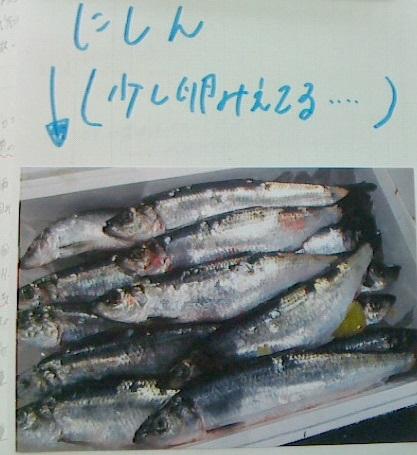 にしん
(少し卵みえてる....)